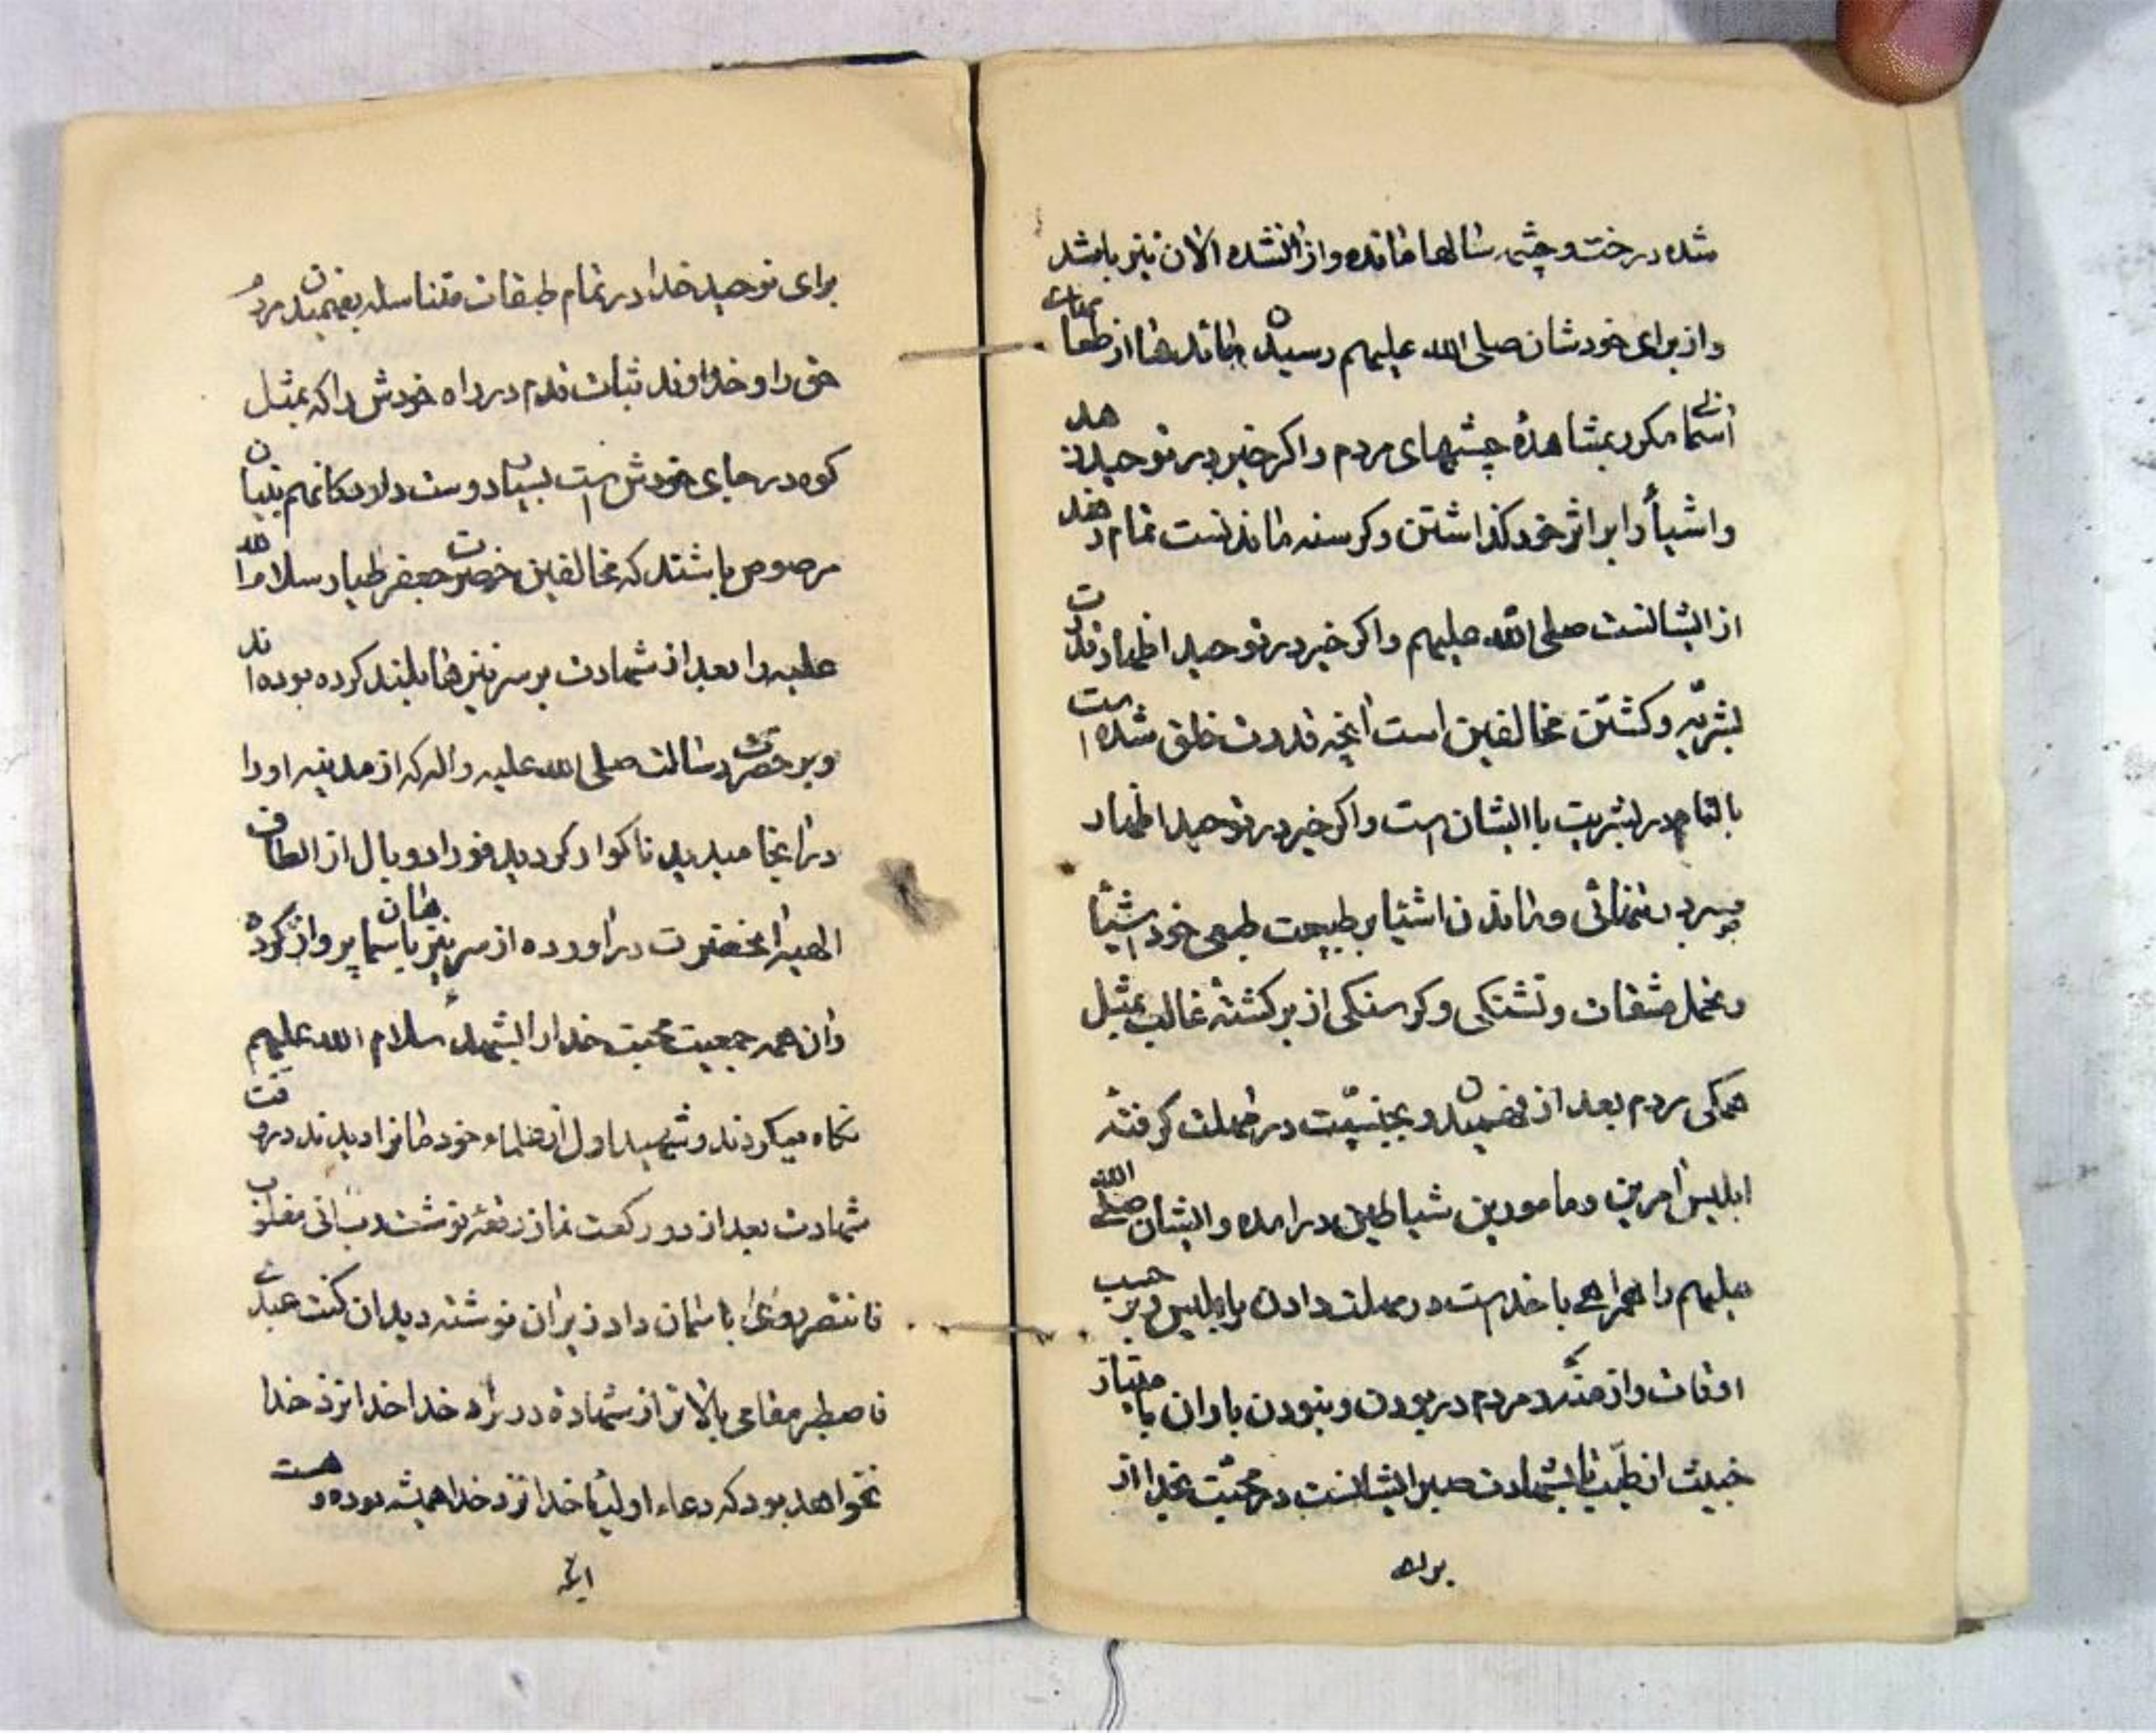 شده درخت و چشمه سالها مانده و زائل نشده الان نیز باشد
و از برای خودشان صلی الله علیهم رسیدن مائدها از طعامهای
آسمانی مکرر بمشاهدهٔ چشمهای مردم و اکر خیر در توحید زهد
و اشیأ را بر اثر خود کذاشتن و کرسنه ماندنست تمام زهد
از ایشانست صلی الله علیهم و اکر خیر در توحید اظهار قدرت
بشریّه و کشتن مخالفین است آنچه قدرت خلق شده است
بالتمام در بشریت با ایشان است و اکر خیر در توحید اظهار
نمائی و ماندن اشیا بر طبیعت طبعی خود اشیأ
و تحمل مشقات و تشنکی و کرسنکی از برکشتهٔ غالب بمثل
همکی مردم بعد از فهمیدن و بجنسیّت در مهلت کرفته
ابلیس آمرین و مامورین شیاطین درآمده و ایشان صلی الله
علیهم را همراهی با خداست در مهلت دادن بابلیس و بر حسب
اوقات و از مردم در بودن و نبودن یاوران با
خبیث از طیّب تا بشهادت صبر ایشانست در محبّت بخدا از
برای
برای توحید خدا در تمام طبقات متناسله بفهمیدن مردم
حق را و خداوند ثبات قدم در راه خودش را که بمثل
کوه در جای خودش است بسیار دوست دارد کانهم بنیان
مرصوص باشند که مخالفین حضرت جعفر طیار سلام الله
علیه را بعد از شهادت بر سر نیزها بلند کرده بوده اند
و بر حضرت رسالت صلی الله علیه و اله که از مدینه او را
در آنجا میدید ناکوار کردید فورا دو بال از الطاف
الهیه آنحضرت درآورده از سر نیزه باسمان پرواز کرده
و آن همه جمعیت محبت خدا را سلام الله علیهم
نکاه میکردند و شهید اول از علماء خودمان را دیدند در وقت
شهادت بعد از دو رکعت نماز رقعهٔ نوشت رب انی مغلوب
فانتصر و باسمان داد زیر آن نوشته دید ان کنت عبدی
فاصطبر مقامی بالاتر از شهادة در راه خدا خدا نزد خدا
نخواهد بود که دعاء اولیأ خدا نزد خدا همیشه بوده و هست
آنچه